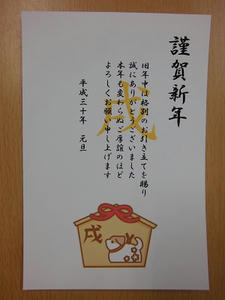 謹賀新年
旧年中は格別のお引き立てを賜り
誠にありがとうございました
本年も変わらぬご厚誼のほど
よろしくお願い申し上げます
平成三十年 元旦
戌
戌